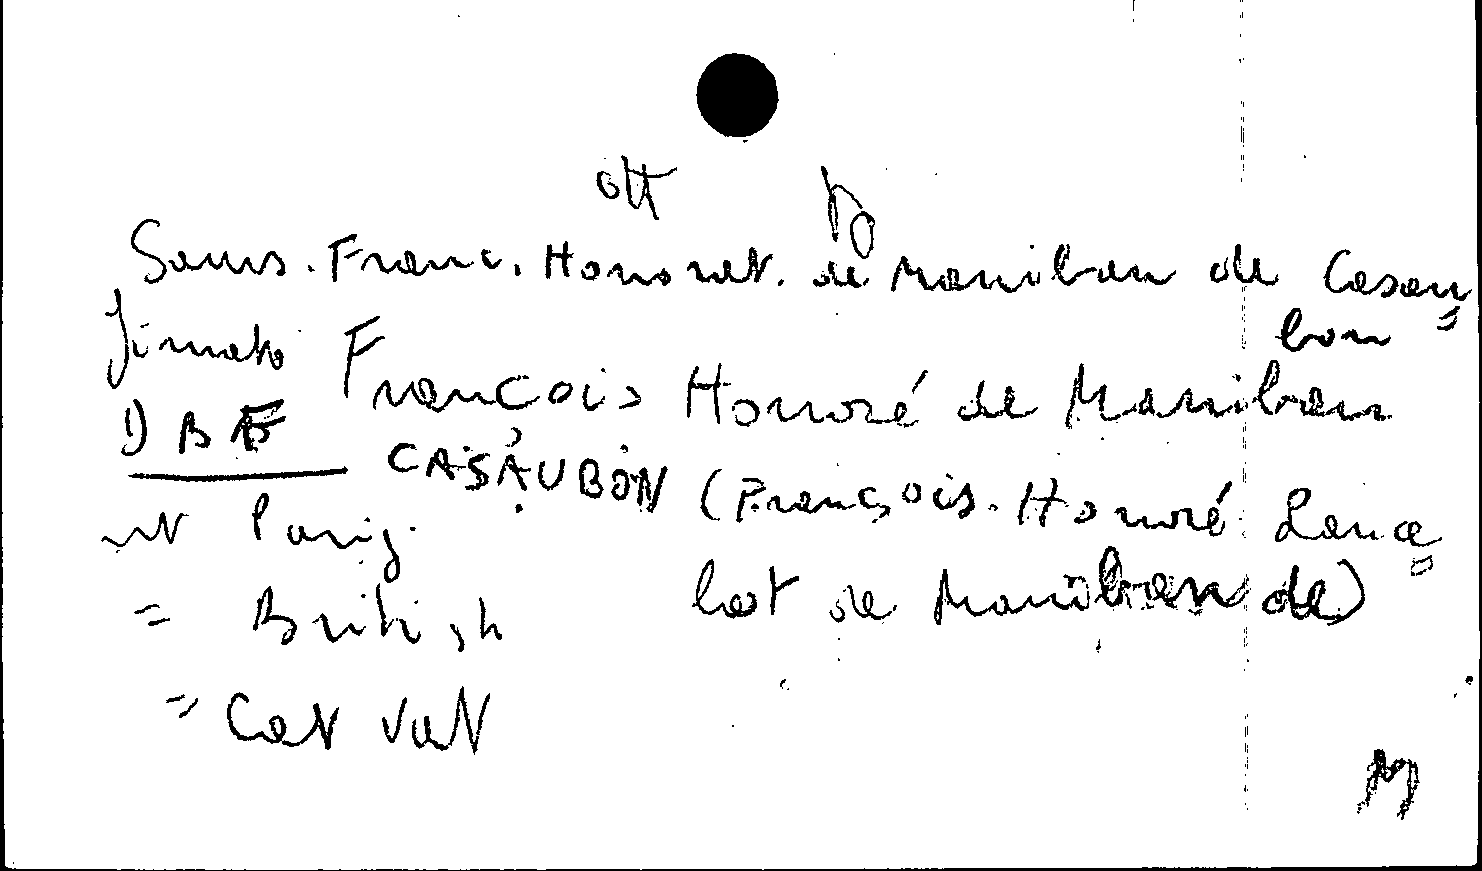 ott
Sams. Franc. Honorat. de Maniban de Casau=
bon
firmato François Honoré de Maniban
1) DBF CASAUBON (François-Honoré Lance=
lot de Maniban de)
nt Parig.
= British
= Cat Vat